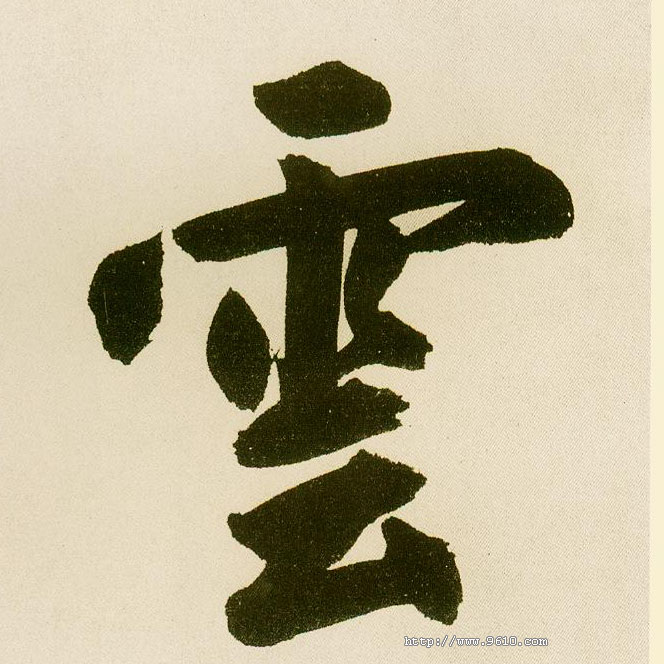 雲
http://www.9610.com